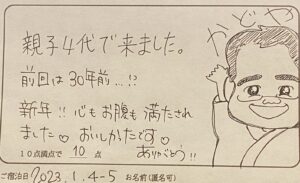 かどや
親子4代で来ました。
前回は30年前…!?
新年!! 心もお腹も満たされ
ました♡ おいしかたです
ありがとう!!
10点満点で 10 点
ご宿泊日 2023.1.4-5 お名前(匿名可)